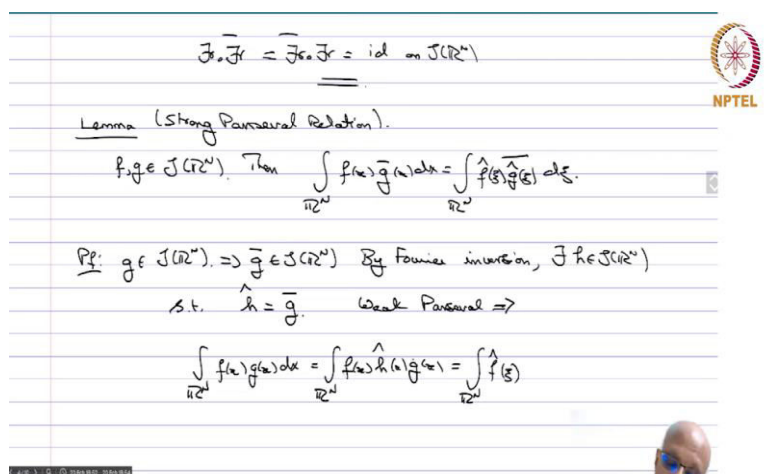 ℱ∘ℱ̄ = ℱ̄∘ℱ = id on 𝒮(ℝᴺ)
NPTEL
Lemma (Strong Parseval Relation).
f,g ∈ 𝒮(ℝᴺ). Then ∫_{ℝᴺ} f(x) ḡ(x)dx = ∫_{ℝᴺ} f̂(ξ) \overline{ĝ(ξ)} dξ.
Pf: g ∈ 𝒮(ℝᴺ). => ḡ ∈ 𝒮(ℝᴺ) By Fourier inversion, ∃ h ∈ 𝒮(ℝᴺ)
s.t. ĥ = ḡ. Weak Parseval =>
∫_{ℝᴺ} f(x) g(x)dx = ∫_{ℝᴺ} f(x) ĥ(x) g(x) = ∫_{ℝᴺ} f̂(ξ)